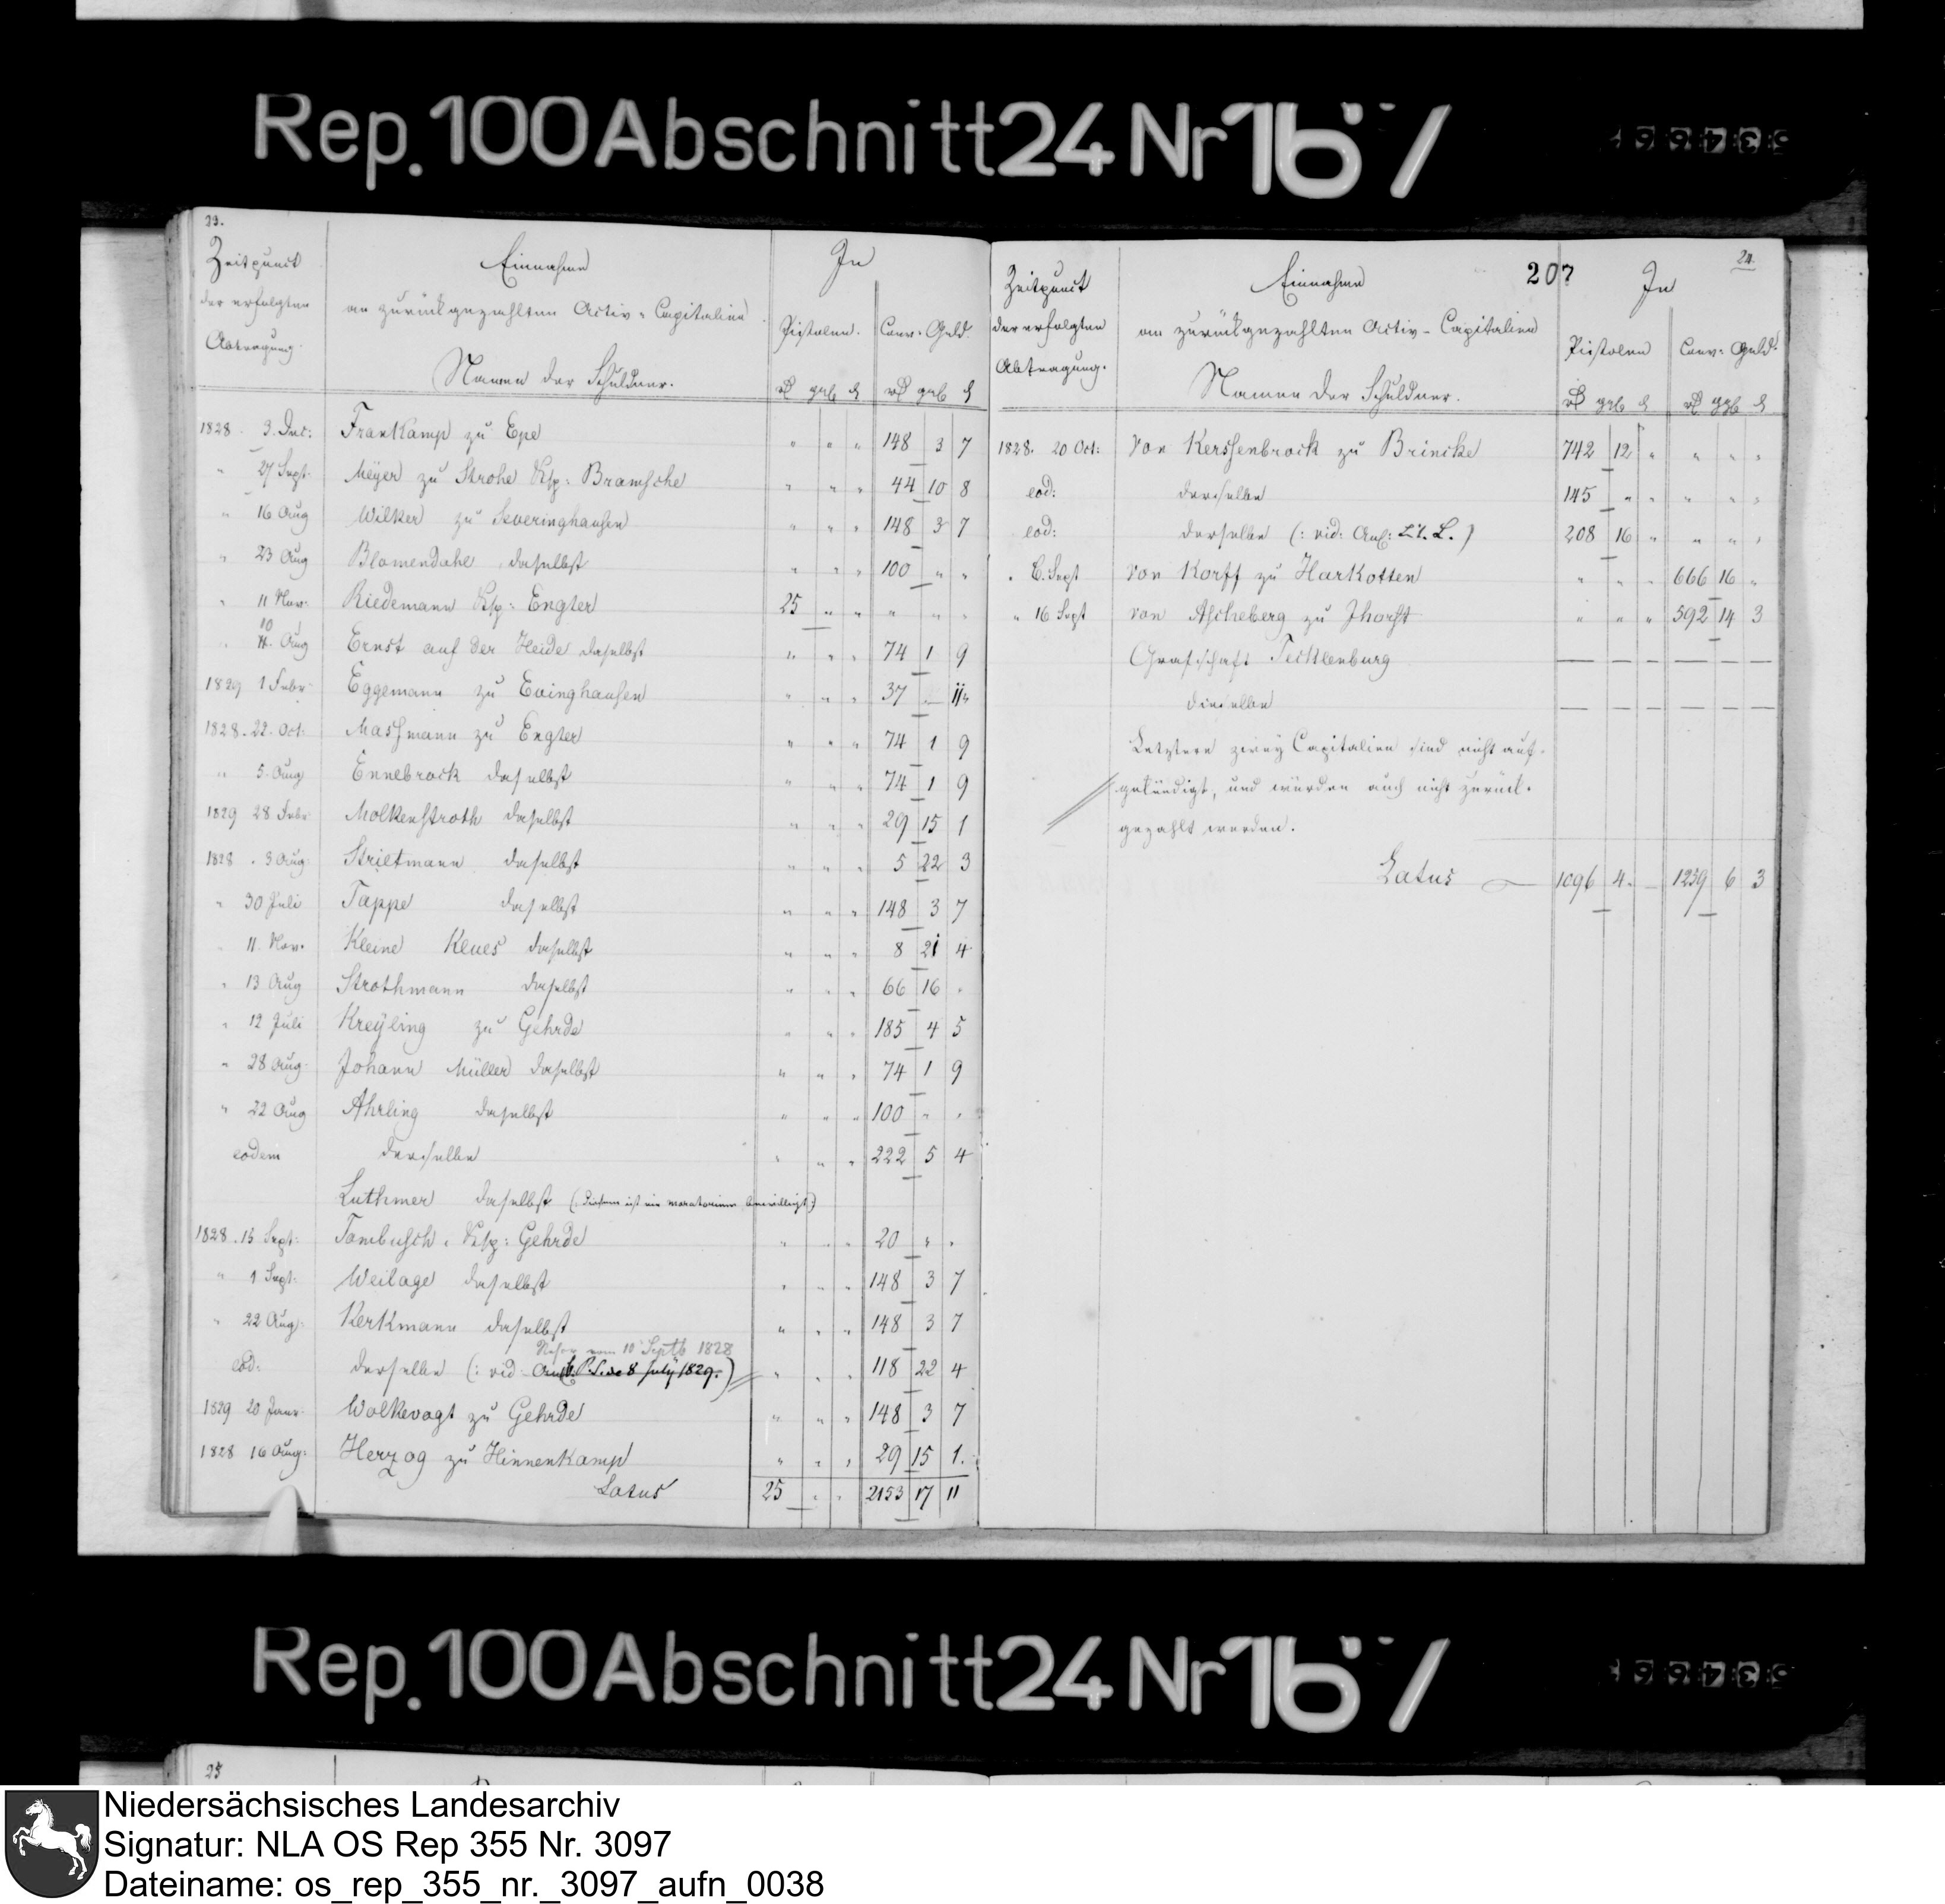 Rep. 100 Abschnitt 24 Nr 167
23.
Zeitpunct
der erfolgten
Abtragung.
Einnahme
an zurückgezahlten Activ-Capitalien
Namen der Schuldner.
In
Pistolen. Conv: Geld.
rℓ ggl ₰ rℓ ggl ₰
1828 3. Dec: Frankamp zu Epe " " " 148 3 7
" 27 Sept: Meÿer zu Strohe Ksp: Bramsche " " " 44 10 8
" 16 Aug Wilker zu Sveringhausen " " " 148 3 7
" 23 Aug Blomendahl daselbst " " " 100 " "
" 11 Nov: Riedemann Ksp: Engter 25 " " " " "
" 10 Aug Ernst auf der Heide daselbst " " " 74 1 9
1829 1 Febr Eggemann zu Evinghausen " " " 37 — 11
1828. 22. Oct: Maschmann zu Engter " " " 74 1 9
" 5. Aug Ennebrock daselbst " " " 74 1 9
1829 28 Febr Molkenstroth daselbst " " " 29 15 1
1828 3 Aug: Strietmann daselbst " " " 5 22 3
" 30 Juli Tappe daselbst " " " 148 3 7
" 11. Nov. Kleine Keues daselbst " " " 8 21 4
" 13 Aug Strothmann daselbst " " " 66 16 "
" 12 Juli Kreÿling zu Gehrde " " " 185 4 5
" 28 Aug: Johann Müller daselbst " " " 74 1 9
" 22 Aug Ahrling daselbst " " " 100 " "
eodem derselbe " " " 222 5 4
Luthmer daselbst (: diesem ist ein moratorium bewilligt :)
1828. 15 Sept: Tombusch, Ksp: Gehrde " " " 20 " "
" 1 Sept: Weilage daselbst " " " 148 3 7
" 22 Aug: Kerkmann daselbst " " " 148 3 7
vom 10 Septb 1828
eod: derselbe (: vid: 8 July 1829.) " " " 118 22 4
1829 20 Janr: Wolkevogt zu Gehrde " " " 148 3 7
1828 16 Aug: Herzog zu Hinnenkamp " " " 29 15 1.
Latus 25 " " 2153 17 11
207
24.
Zeitpunct
der erfolgten
Abtragung.
Einnahme
an zurückgezahlten Activ-Capitalien
Namen der Schuldner.
In
Pistolen Conv: Geld.
rℓ ggl ₰ rℓ ggl ₰
1828. 20 Oct: Von Kerssenbrock zu Brincke 742 12 " " " "
eod: derselbe 145 " " " " "
eod: derselbe (: vid: Anl: Lit. L.) 208 16 " " " "
" 6. Sept Von Korff zu Harkotten " " " 666 16 "
" 16 Sept von Ascheberg zu Ihorst " " " 592 14 3
Grafschaft Tecklenburg — — — — — —
dieselbe — — — — — —
Letztere zweÿ Capitalien sind nicht auf-
gekündigt, und würden auch nicht zurück-
gezahlt werden.
Latus 1096 4 — 1259 6 3
Rep. 100 Abschnitt 24 Nr 167
25
Niedersächsisches Landesarchiv
Signatur: NLA OS Rep 355 Nr. 3097
Dateiname: os_rep_355_nr._3097_aufn_0038